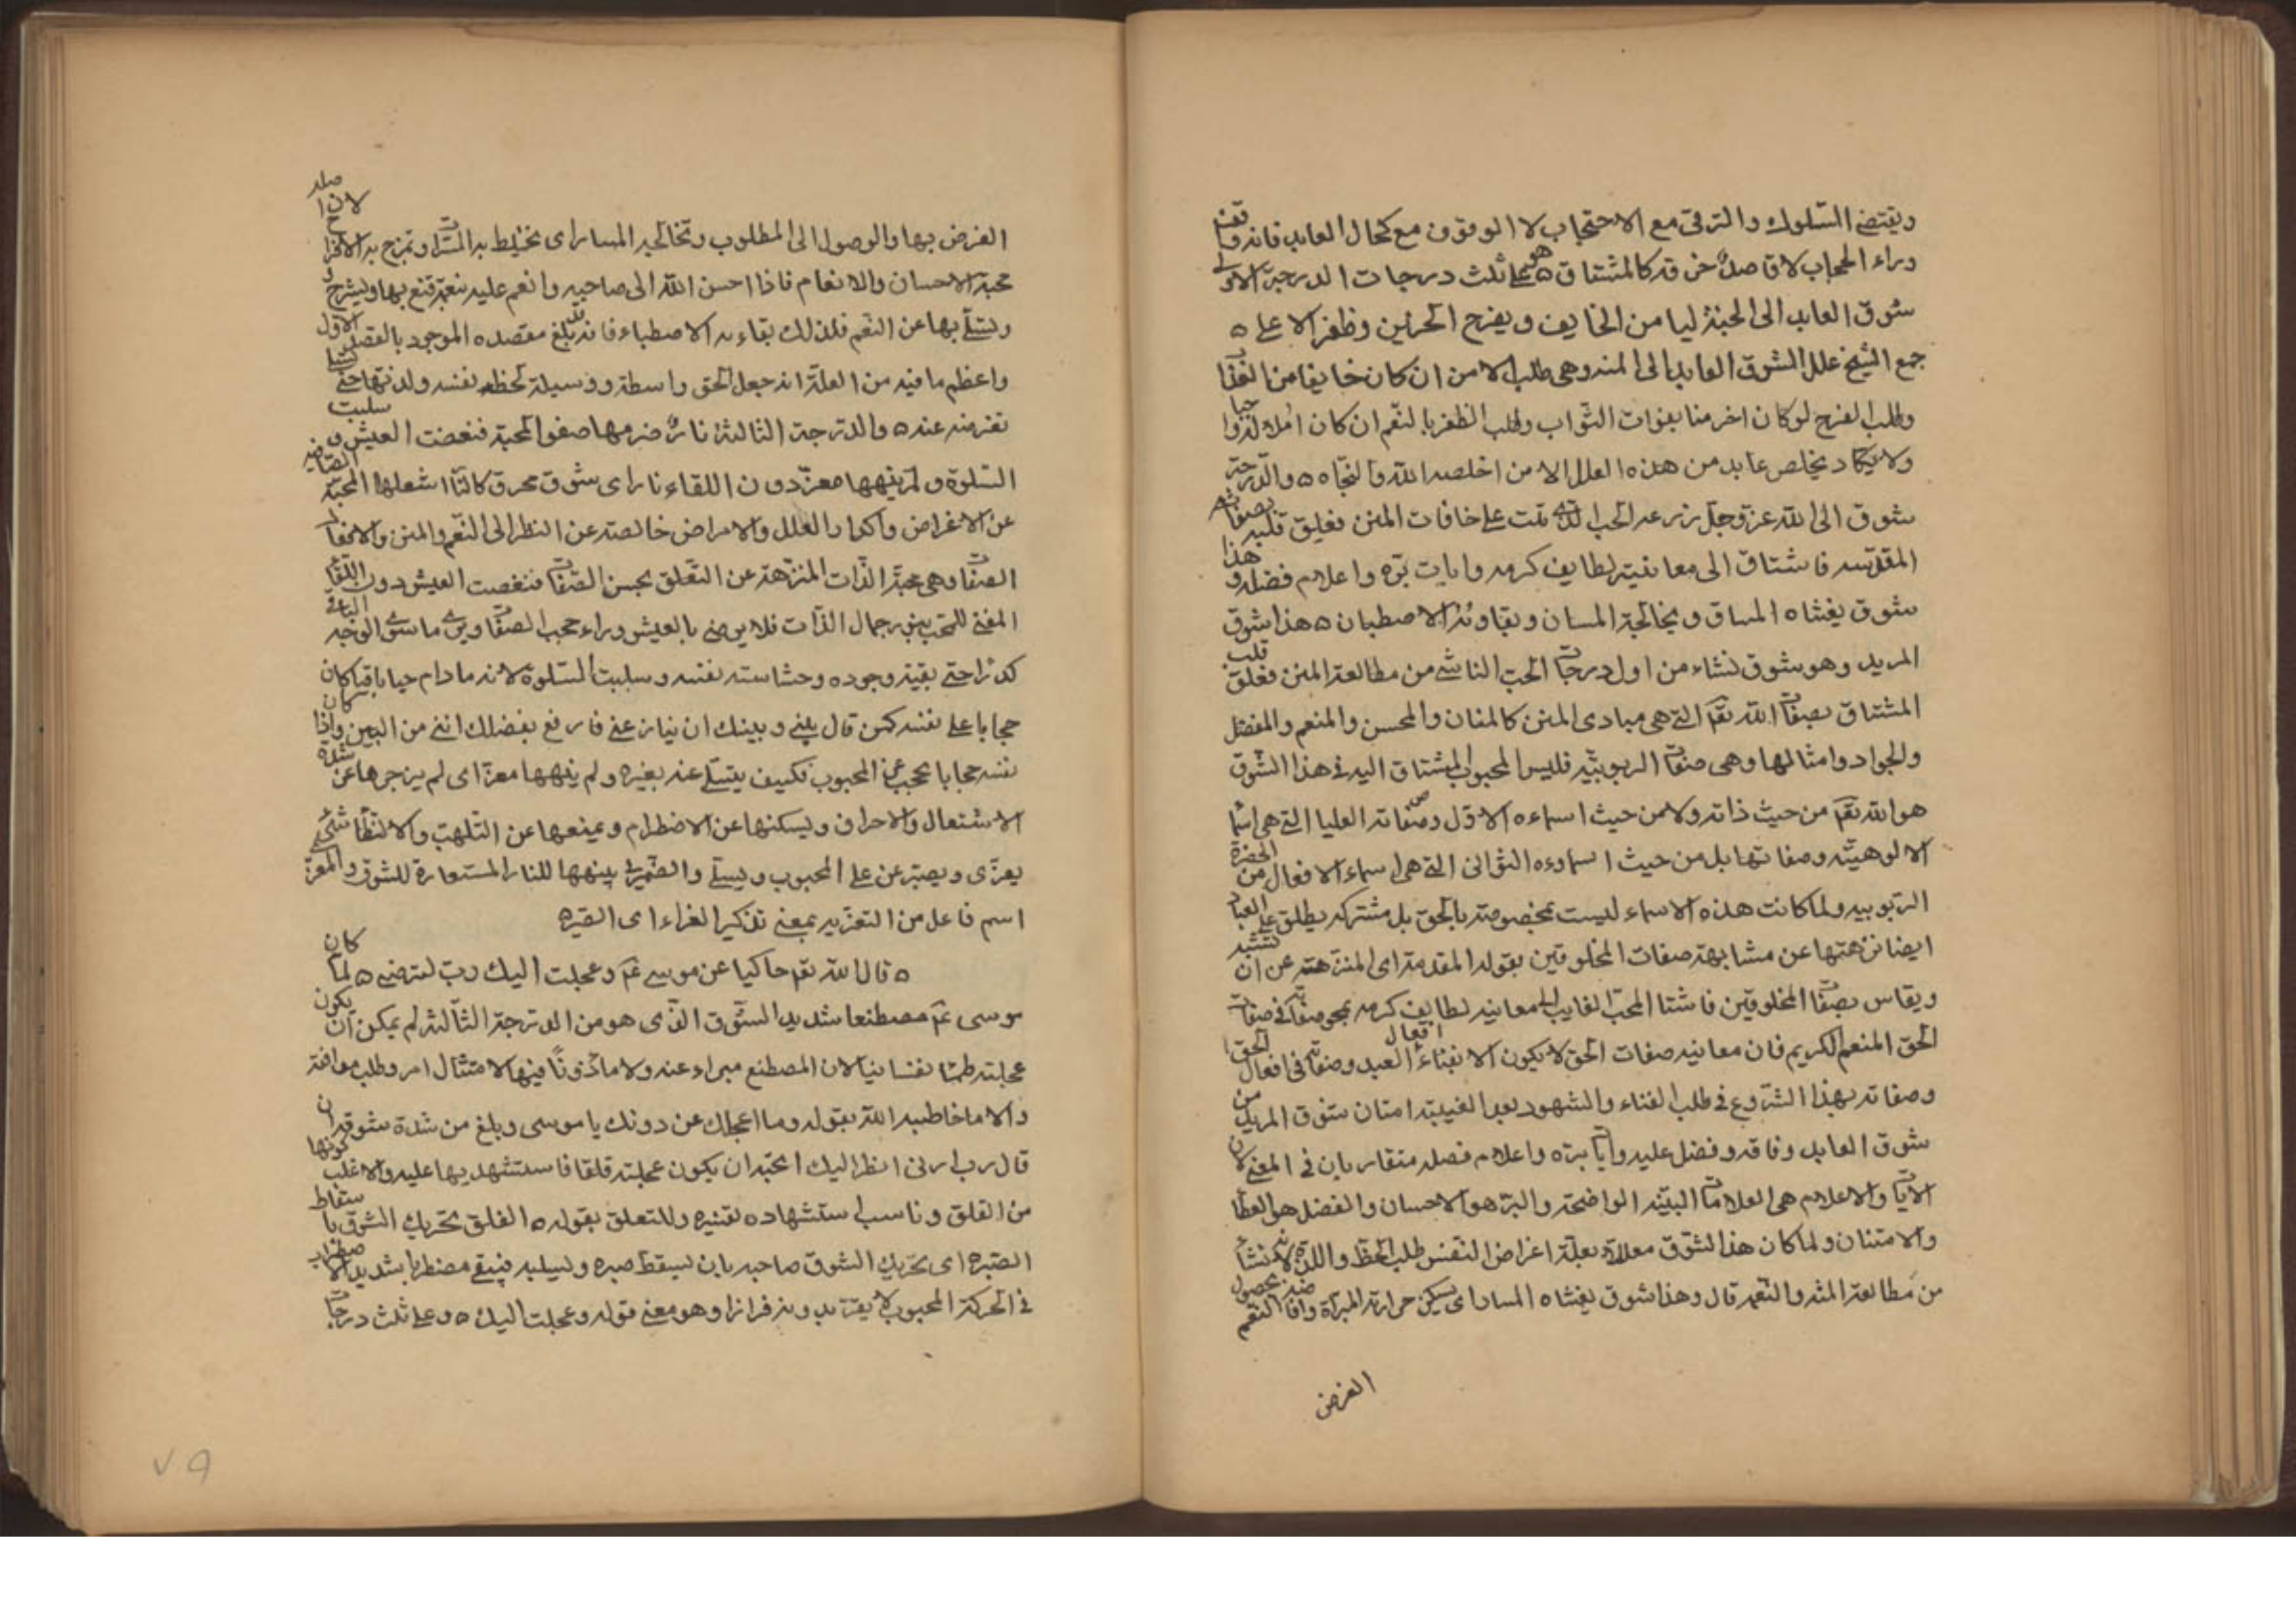 ويقتضى السّلوك والترقى مع الاحتجاب لا الوقوف مع كحال العابد فانه واقف
وراء الحجاب لا قاصد خرقه كالمشتاق ه وهو على ثلث درجات الدرجة الاولى
شوق العابد الى الجنة ليامن الخايف ويفرح الحزين وظفر الاعلى ه
جمع الشيخ علل الشوق العابد الى المنه وهى طلب الامن ان كان خايفا من العذاب
وطلب الفرح لو كان اخر منا بفوات الثّواب وطلب الظفر بالنّعم ان كان املا لذوا
ولا يكاد يخلص عابد من هذه العلل الا من اخلصه الله والنجاه ه والدّرجة
شوق الى الله عزّ وجلّ زرعه الحب الذى نبت على حافات المنن فعلق قلبه بصفاته
المقدّسه فاشتاق الى معاينة لطايف كرمه وايات برّه واعلام فضله و هذا
شوق يغشاه المساق ويخالجة المسان ويقاويه الاصطبان ه هذا شوق
المريد وهو شوق نشاء من اول درجات الحب الناشى من مطالعة المنن فعلق قلب
المشتاق بصفات الله تعم التى هى مبادى المنن كالمنان والمحسن والمنعم والمفضل
والجواد وامثالها وهى صفات الربوبيّه فليس المحبوب المشتاق اليه فى هذا الشّوق
هو الله تعم من حيث ذاته ولا من حيث اسماءه الاوّل وصفاته العليا التى هى اسما
الالوهيّه وصفاتها بل من حيث اسماءه الثوانى التى هى اسماء الافعال من الحضرة
الرّبوبيه ولما كانت هذه الاسماء ليست بمخصوصة بالحق بل مشتركه يطلق على العباد
ايضا نزهتها عن مشابهة صفات المخلوقين بقوله المقدمة اى المنزهة عن ان تشبه
ويقاس بصفات المخلوقين فاشتا المحبّ الغايب الى معاينه لطايف كرمه بمحو صفاته فى صفات
الحق المنعم الكريم فان معاينه صفات الحق لا يكون الا بفناء افعال العبد وصفاته فى افعال الحق
وصفاته بهذا الشّروع فى طلب الفناء والشهود بعد الغيبة امتان شوق المريد من
شوق العابد وفاقه وفضل عليه وايات برّه واعلام فضله متقاربان فى المعنى لان
الايات والاعلام هى العلامات البيّنه الواضحة والبرّ هو الاحسان والفضل هو العطا
والامتنان ولما كان هذا الشّوق معللا بعلّة اغراض النفس طلب الحظ واللذة لانه نشأ
من مطالعة المنّه والنّعم قال وهذا شوق يغشاه المساد اى يسكن حرارته المبرّاة وافا النّعم
الغرض
الغرض بها والوصول الى المطلوب وتخالجه المسار اى يختلط به المسرّات ويمزج به الافراح لان
محبة الاحسان والانعام فاذا احسن الله الى صاحبه وانعم عليه بنعمة قنع بها ويشرح
وتسلّى بها عن النّعم فلذلك بقاءيه الاصطباء فانه بلغ مقصده الموجود بالقصد الاول
واعظم ما فيه من العلّة انه جعل الحق واسطة ووسيلة لحظ نفسه ولذتها حتى
تفرضه عنه ه والدّرجة الثالثة نارٌ ضرمها صفو المحبّة فنغصت العيش و سلبت
السّلوة ولم ينهها معزّ دون اللقاء نار اى شوق محرق كالنّار اشعلها المحبّة الصّافيه
عن الاغراض واكدار العلل والامراض خالصة عن النظر الى النّعم والمنن والافعال
الصّفات وهى محبّة الذّات المنزّهة عن التّعلق بحسن الصّفات فنغصت العيش دون اللّقاء
المغنى للمتحب بنور جمال الذّات فلا يرضى بالعيش وراء حجب الصفات ويرى ما سوى الوجه الباقى
كدرا حتى بقية وجوده وحشاسته نفسه وسلبت السّلوة لانه ما دام حيا باقيا كان
حجابا على نفسه كمن قال بينى وبينك ان ينازعنى فارفع بفضلك انى من البين واذا كان
نفسه حجابا يحجب عن المحبوب فكيف يتسلّى عنه بغيره ولم ينهها معزّ اى لم يزجرها عن شدّة
الاشتعال والاحراق وليسكنها عن الاضطرام ويمنعها عن التّلهب والالتظا شئ
يعزّى ويصبّر عن على المحبوب ويسلى والضّمير فى ينهها للنار المستعارة للشوق والمعزّ
اسم فاعل من التعزيه بمعنى تذكير الغراء اى الصّبره
ه قال الله تعم حاكيا عن موسى عم وعجلت اليك ربّ لترضى ه لما كان
موسى عم مصطنعا شديد الشّوق الذى هو من الدّرجة الثّالثة لم يمكن ان يكون
عجلته طمعا نفسانيا لان المصطنع مبراء عنه ولا ماذونًا فيها لامتثال امر وطلب موافقة
والا ما خاطبه الله بقوله وما اعجلك عن دونك يا موسى وبلغ من شدّة شوقه ان
قال رب ارنى انظر اليك احتبه ان يكون عجلته قلقا فاستشهد بها عليه والاغلب كونها
من القلق وناسب استشهاده لقنيره وللتعلق بقوله ه القلق تحريك الشوق باسقاط
الصّبره اى تحريك الشوق صاحبه بان يسقط صبره وليسلبه فيبقى مضطربا شديد الاضطراب
فى الحركة المحبوب لا يفتر بد ويزفرا زا وهو معنى قوله وعجلت اليك ه وعلى ثلث درجات
٧٩